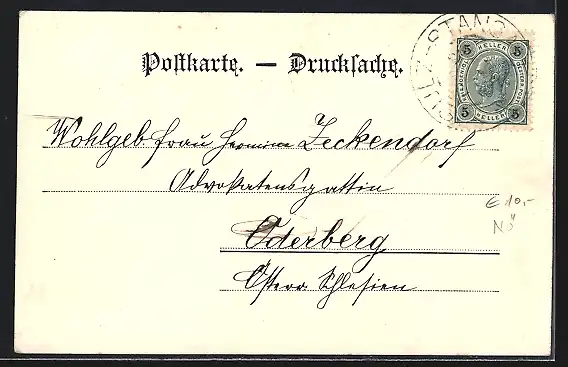 Postkarte. — Drucksache.
5 HELLER 5
5 HELLER 5
Wohlgeb. Frau Hermine Zeckendorf
Advokatensgattin
Oderberg
Österr. Schlesien
€ 10,-
NÖ